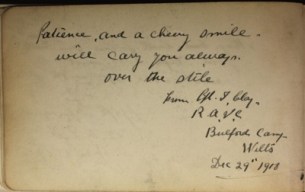 Patience, and a cheery smile.
will cary you always.
over the stile
from Pt. J.
R.A.V.C
Bulford Camp
Wilts
Dec 29" 1918